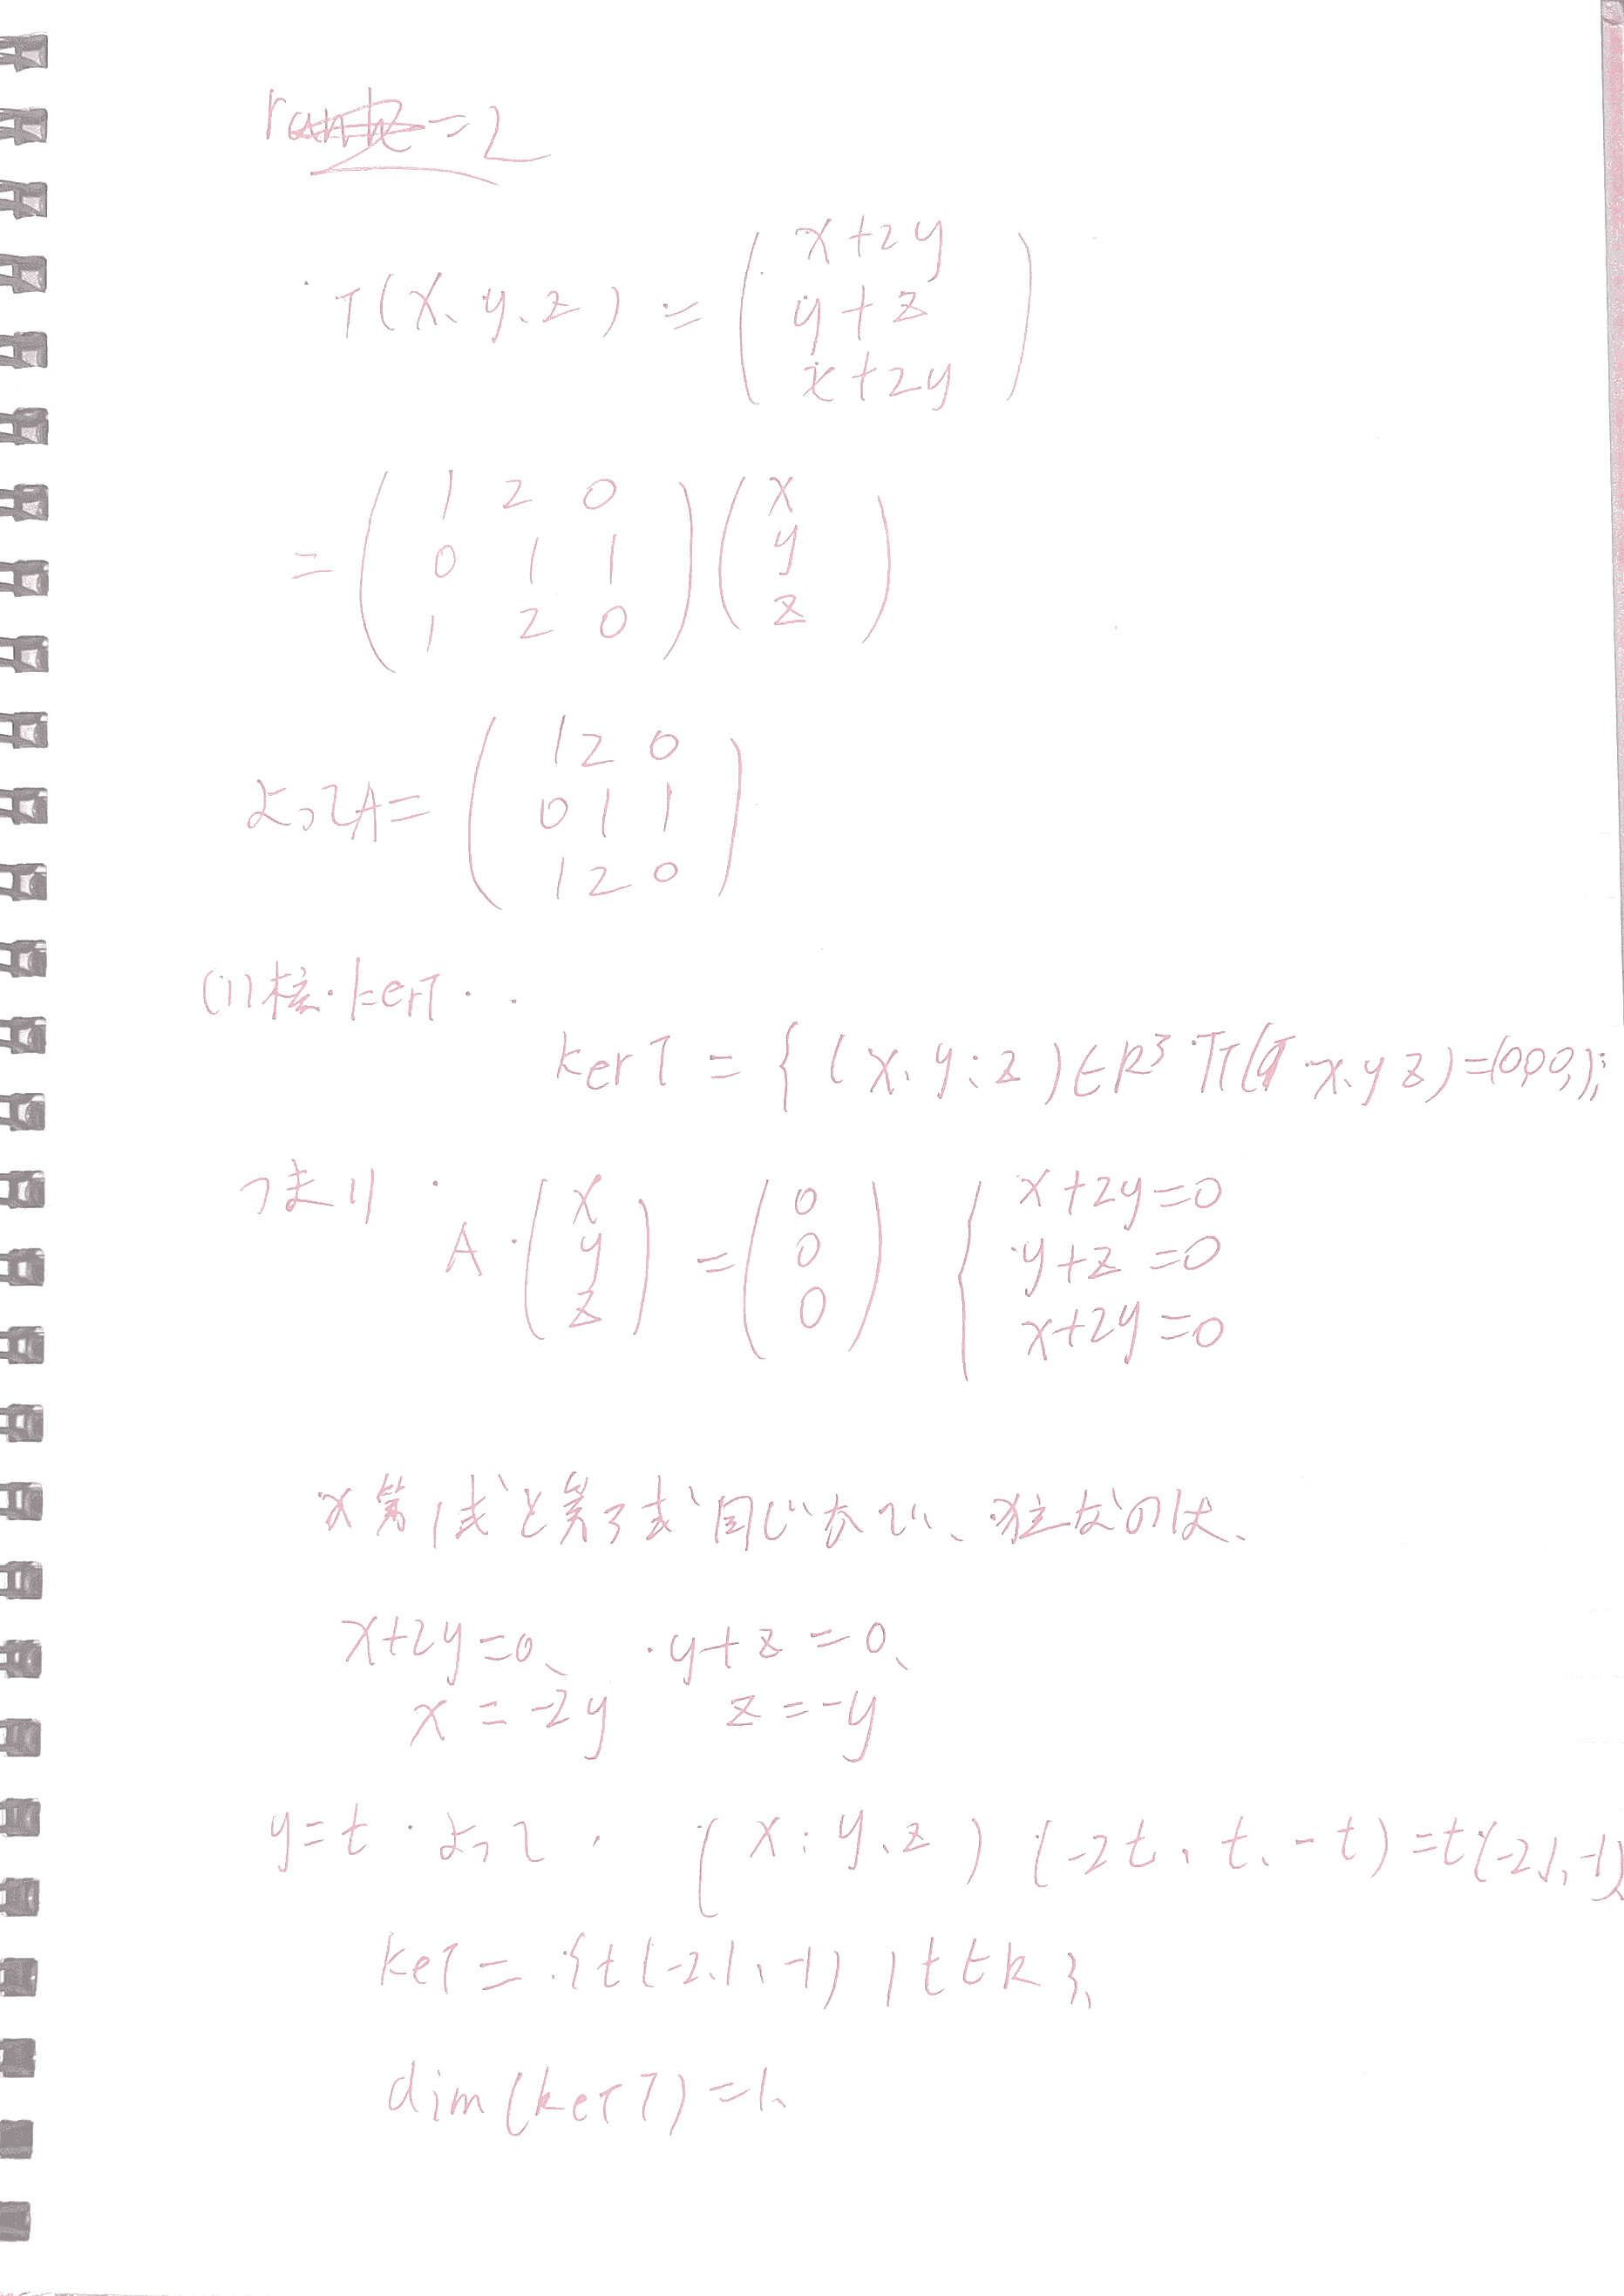 rank=2
T(x、y、z) = ( x+2y
y+z
x+2y )
= ( 1 2 0
0 1 1
1 2 0 ) ( x
y
z )
よってA= ( 1 2 0
0 1 1
1 2 0 )
(1) 核・kerT・・
kerT = { (x、y;z)∈R³ x、y z)=(0,0,0,);
つまり・
A・( x
y
z ) = ( 0
0
0 ) { x+2y=0
・y+z=0
x+2y=0
第1式と第3式同じ、独立なのは、
x+2y=0、 ・y+z=0、
x=-2y z=-y
y=t・よって、 (x;y、z) (-2t、t、-t)=t(-2,1,-1)
keT=・{t(-2、1、-1) | t∈R}、
dim(kerT)=1、